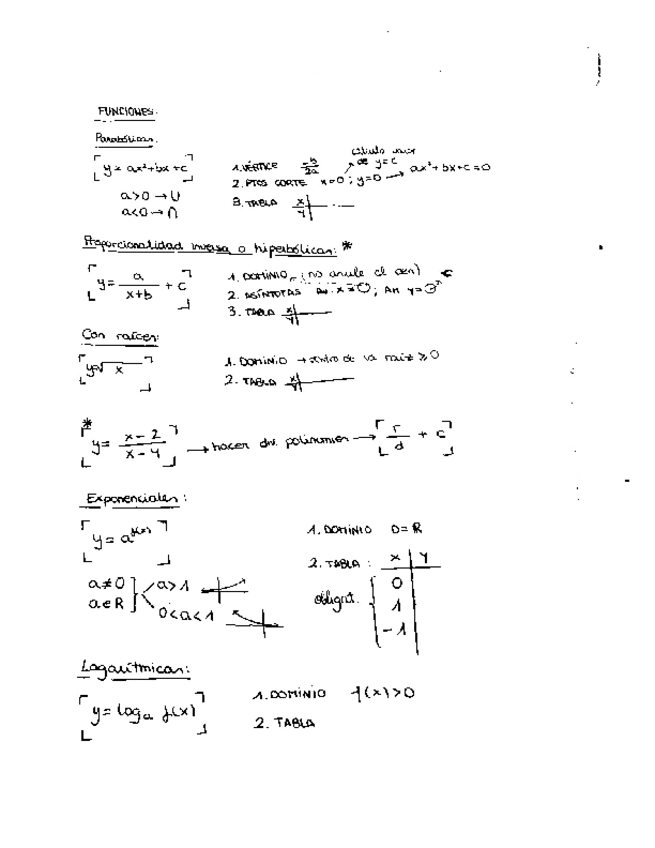 FUNCIONES.
Parabólicas.
y = ax²+bx+c
a>0 → ∪
a<0 → ∩
1. VÉRTICE -b/2a
2. PTOS CORTE x=0 ; y=0 → ax²+bx+c=0
de y=c
3. TABLA x y
Proporcionalidad inversa o hiperbólicas: *
y = a/(x+b) + c
1. DOMINIO (no anule el den)
2. ASÍNTOTAS
3. TABLA x y
Con raíces:
y=√x
1. DOMINIO → dentro de la raíz ≥ 0
2. TABLA x y
*
y = (x-2)/(x-4) → hacer div. polinomios → r/d + c
Exponenciales:
y = a^f(x)
a≠0
a∈R
a>1
0<a<1
1. DOMINIO D=R
2. TABLA: x y
obligat. 0
1
-1
Logarítmicas:
y = log_a f(x)
1. DOMINIO f(x)>0
2. TABLA